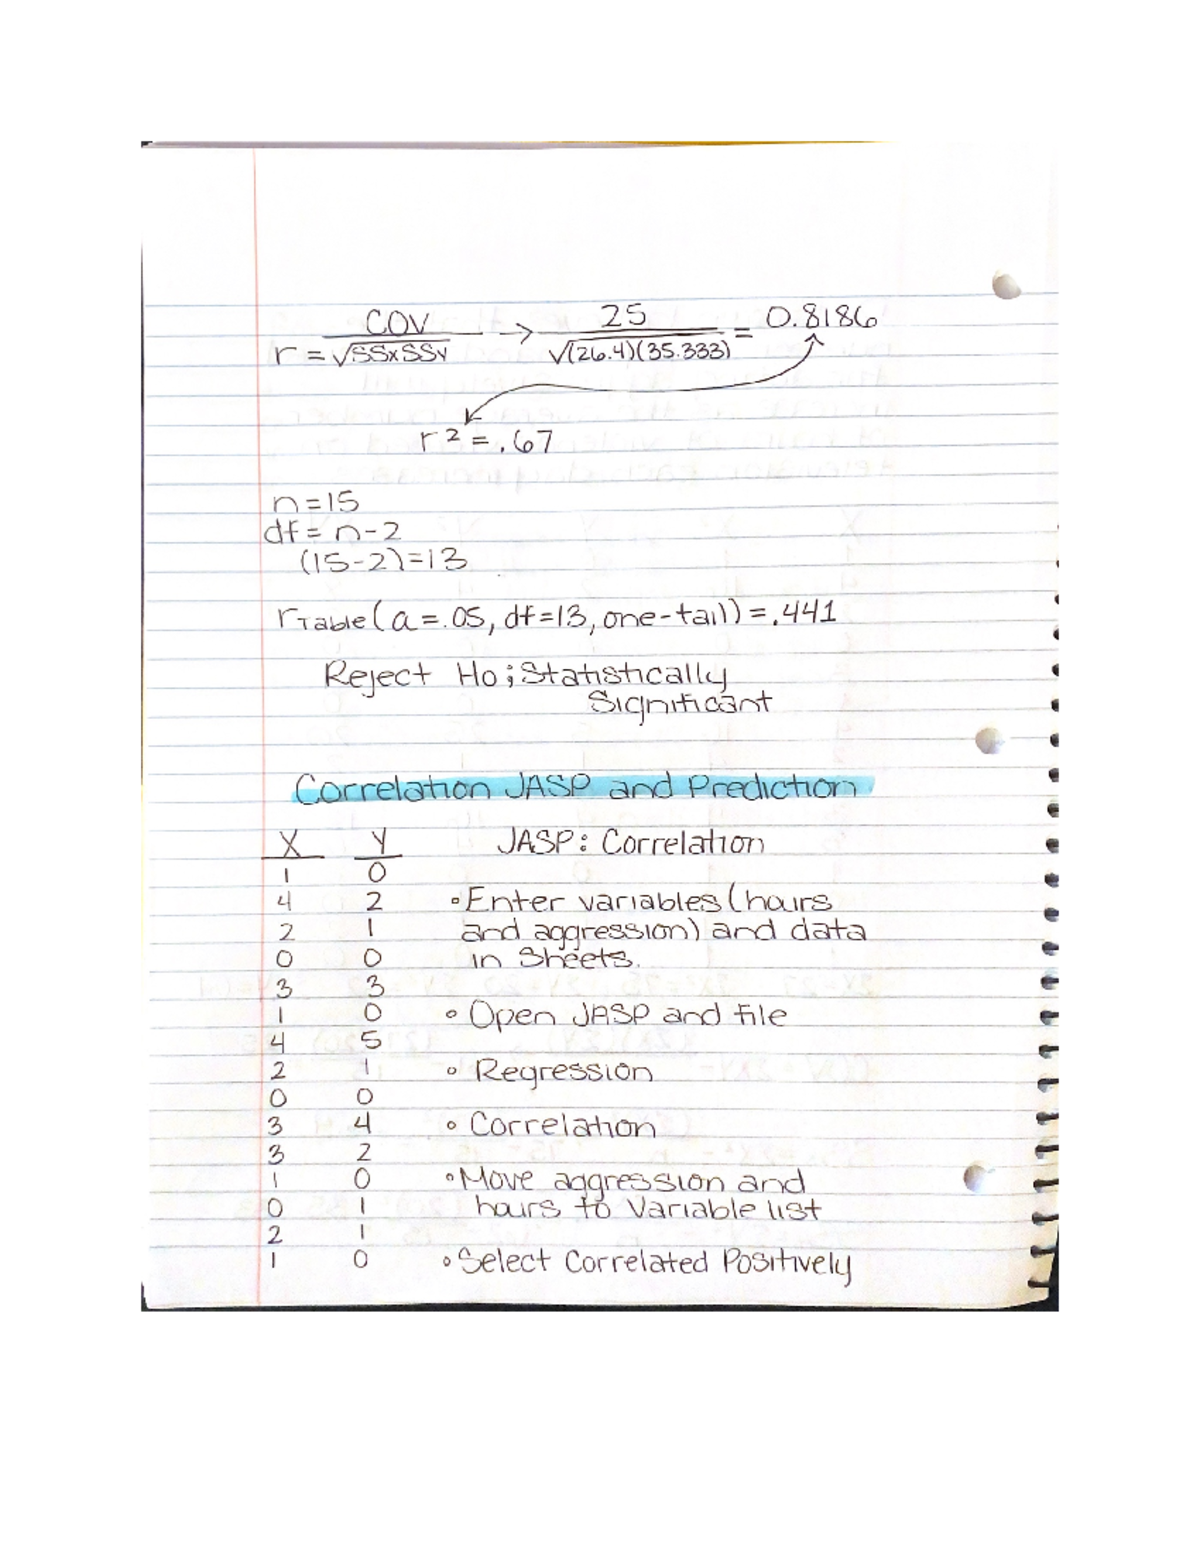 r = COV / √SSxSSy → 25 / √(26.4)(35.333) = 0.8186
r² = .67
n = 15
df = n - 2
(15-2) = 13
rTable (a = .05, df = 13, one-tail) = .441
Reject Ho; Statistically
Significant
Correlation JASP and Prediction
X Y JASP: Correlation
1 0
4 2 • Enter variables (hours
2 1 and aggression) and data
0 0 in Sheets.
3 3
1 0 • Open JASP and file
4 5
2 1 • Regression
0 0
3 4 • Correlation
3 2
1 0 • Move aggression and
0 1 hours to Variable list
2 1
1 0 • Select Correlated Positively